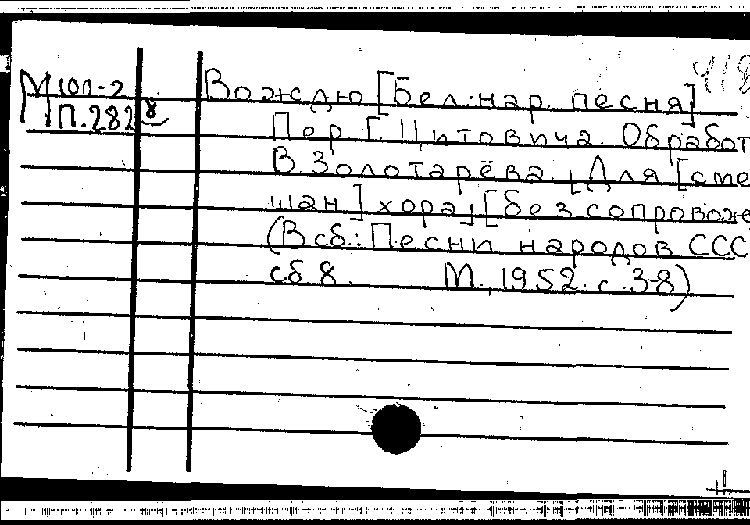 418
М 10п-2
П.282 8
Вождю [Бел. нар. песня]
Пер. Г. Цитовича. Обработ
В. Золотарёва. [Для [сме
шан] хора] [без сопровож
(В сб.: Песни народов ССС
сб 8. М., 1952. с. 3-8)